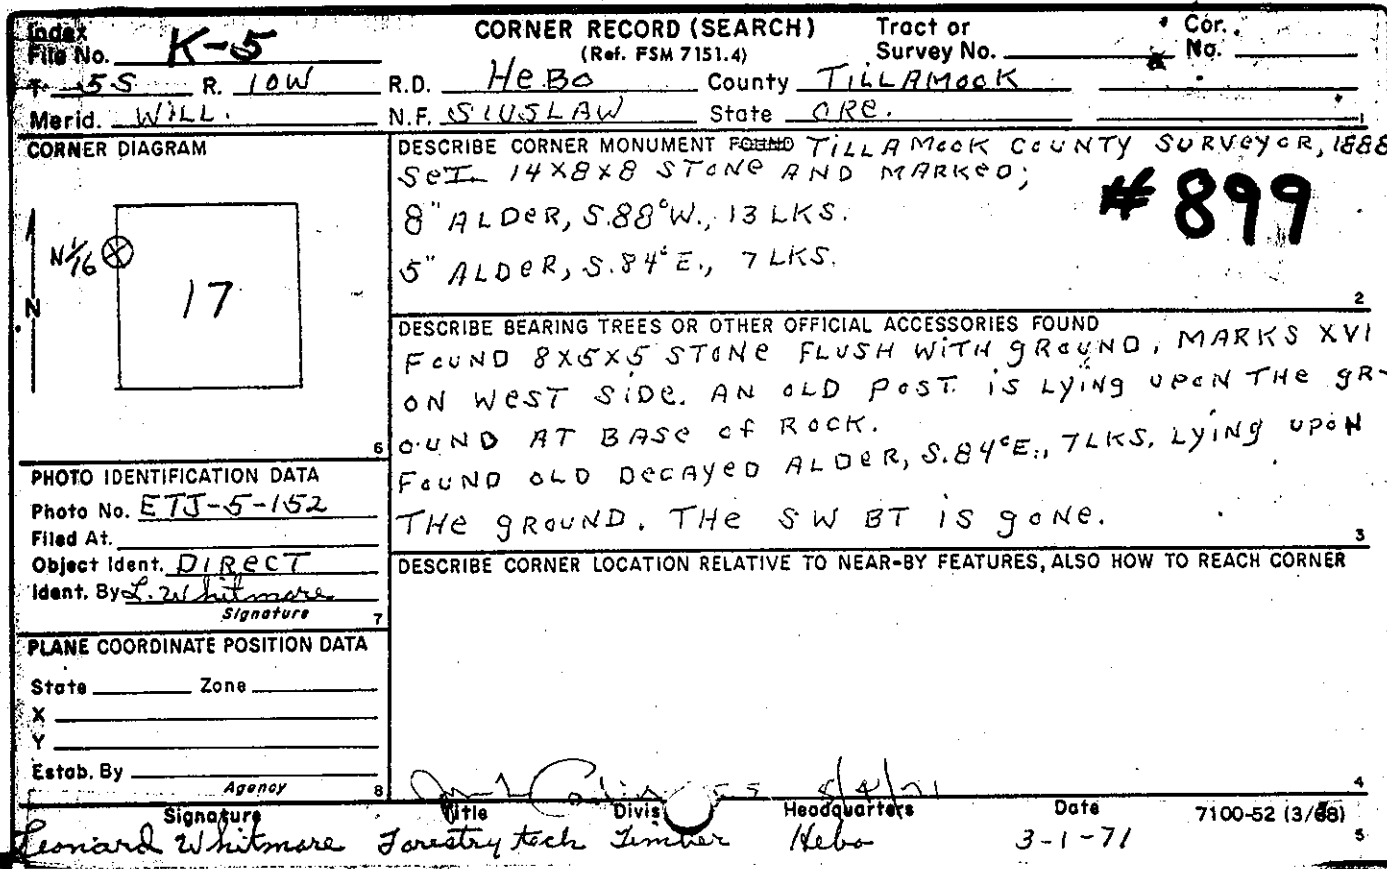 Index
File No. K-5
CORNER RECORD (SEARCH)
(Ref. FSM 7151.4)
Tract or
Survey No.
Cor.
No.
T. 5S R. 10W R.D. HeBo County TILLAMOOK
Merid. WILL. N.F. SIUSLAW State ORE.
1
CORNER DIAGRAM
N 1/16
17
N
6
DESCRIBE CORNER MONUMENT FOUND TILLAMOOK COUNTY SURVEYOR, 1888
SET 14X8X8 STONE AND MARKED;
#899
8" ALDER, S.88°W., 13 LKS.
5" ALDER, S.84°E., 7 LKS.
2
DESCRIBE BEARING TREES OR OTHER OFFICIAL ACCESSORIES FOUND
FOUND 8X5X5 STONE FLUSH WITH GROUND, MARKS XVI
ON WEST SIDE. AN OLD POST IS LYING UPON THE GR-
OUND AT BASE OF ROCK.
FOUND OLD DECAYED ALDER, S.84°E., 7LKS. LYING UPON
THE GROUND. THE SW BT IS GONE.
3
PHOTO IDENTIFICATION DATA
Photo No. ETJ-5-152
Filed At.
Object Ident. DIRECT
Ident. By L. Whitmore
Signature
7
DESCRIBE CORNER LOCATION RELATIVE TO NEAR-BY FEATURES, ALSO HOW TO REACH CORNER
PLANE COORDINATE POSITION DATA
State Zone
X
Y
Estab. By
Agency
8
4
Signature Title Divis Headquarters Date 7100-52 (3/68)
Leonard Whitmore Forestry tech Timber Hebo 3-1-71
5